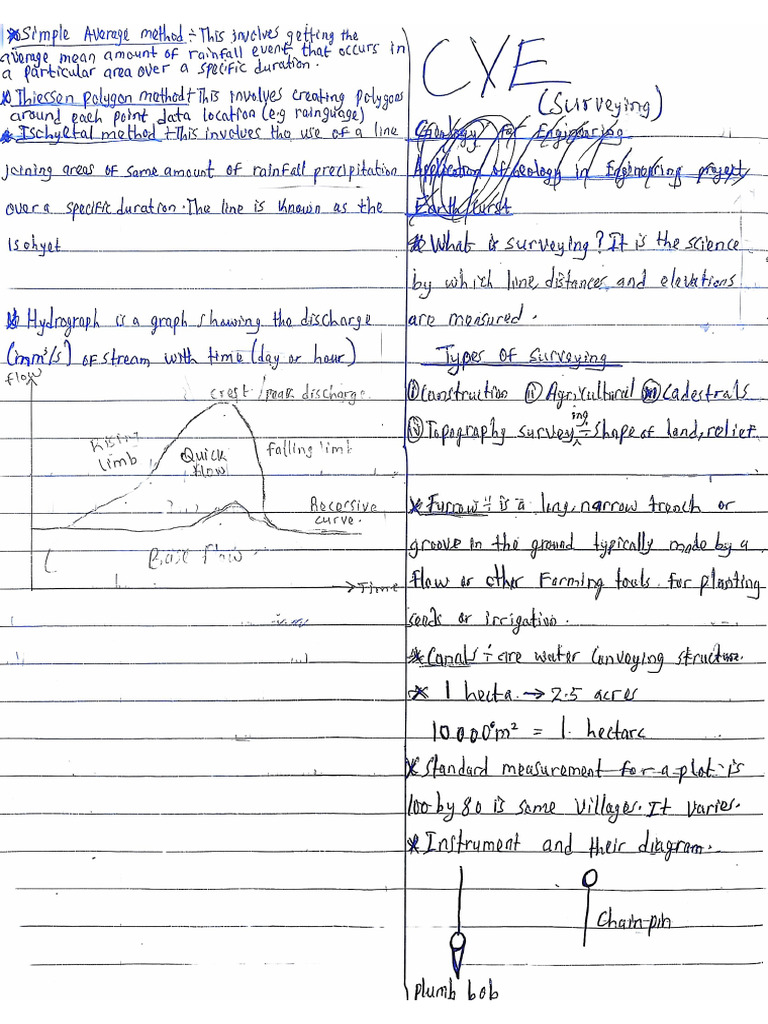 * Simple Average method:- This involves getting the
average mean amount of rainfall event that occurs in
a particular area over a specific duration.
* Thiessen polygon method:- This involves creating polygons
around each point data location (e.g rainguage)
* Ischyetal method:- This involves the use of a line
joining areas of same amount of rainfall precipitation
over a specific duration. The line is known as the
Isohyet
* Hydrograph is a graph showing the discharge
(mm³/s) of stream with time (day or hour)
flow
crest/peak discharge
Rising
limb
Quick
flow
falling limb
Recorsive
curve.
Base flow
Time
CXE
(Surveying)
Geology for Engineering
Application of Geology in Engineering project
Earth
* What is surveying? It is the science
by which line, distances and elevations
are measured.
Types of Surveying
(i) Construction (ii) Agricultural (iii) Cadestrals
(iv) Topography surveying :- Shape of land, relief
* Furrow :- is a long, narrow trench or
groove in the ground typically made by a
flow or other Farming tools. for planting
seeds or irrigation.
* Canals :- are water conveying structure.
* 1 hecta. → 2.5 acres
10000m² = 1. hectare
* Standard measurement for a plot is
100 by 80 is some Villages. It varies.
* Instrument and their diagram.
Chain pin
plumb bob